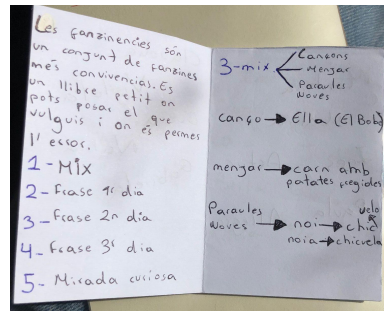 Les fanzinencies són
un conjunt de fanzines
més convivencias. Es
un llibre petit on
pots posar el que
vulguis i on es permes
l'error.
1- Mix
2- Frase 1r dia
3- Frase 2n dia
4- Frase 3r dia
5- Mirada curiosa
3-mix
Cançons
Menjar
Paraules
Noves
canço → Ella (El Bob)
menjar → carn amb
patates fregides
Paraules
Noves → noi → chic
velo
noia → chicuela